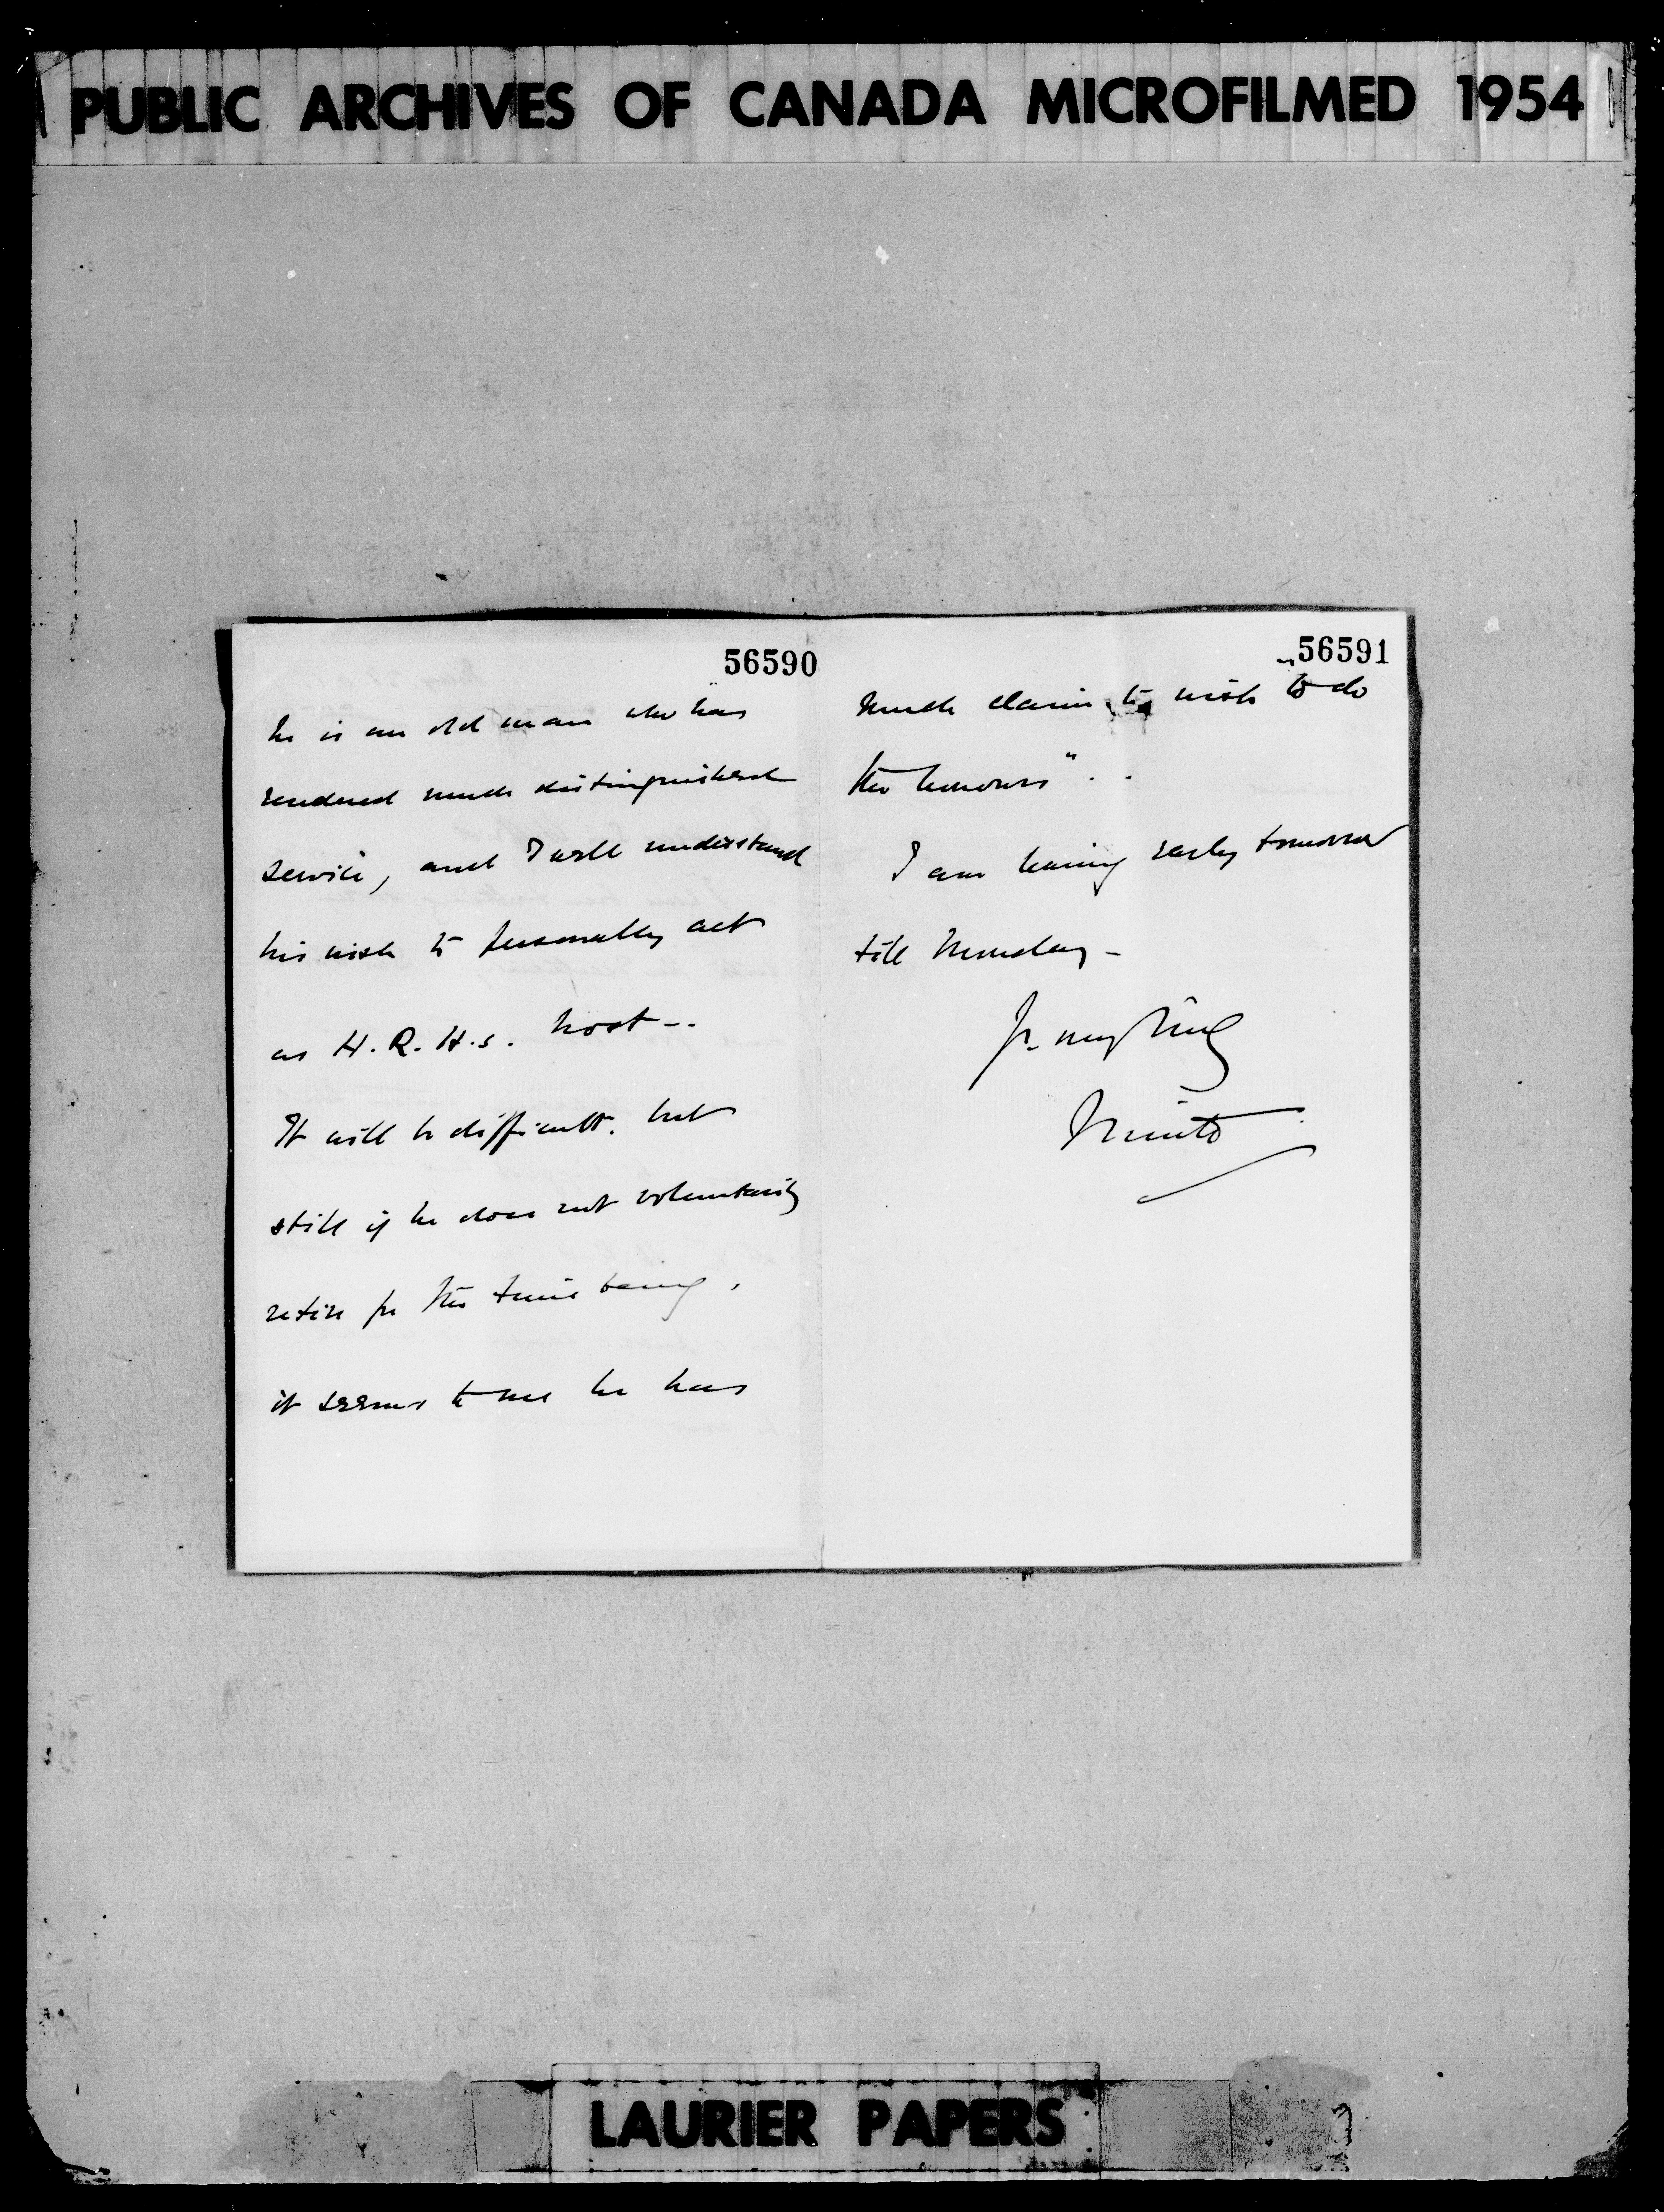 PUBLIC ARCHIVES OF CANADA MICROFILMED 1954
56590
he is an old man who has
rendered much distinguished
service, and I well understand
his wish to personally act
as H.R.H.s. host--
It will be difficult. but
still if he does not voluntarily
retire for the time being,
it seems to me he has
56591
much claim to wish "to do
the honours" . .
I am leaving early tomorrow
till Monday -
Yr. very truly
Minto
LAURIER PAPERS